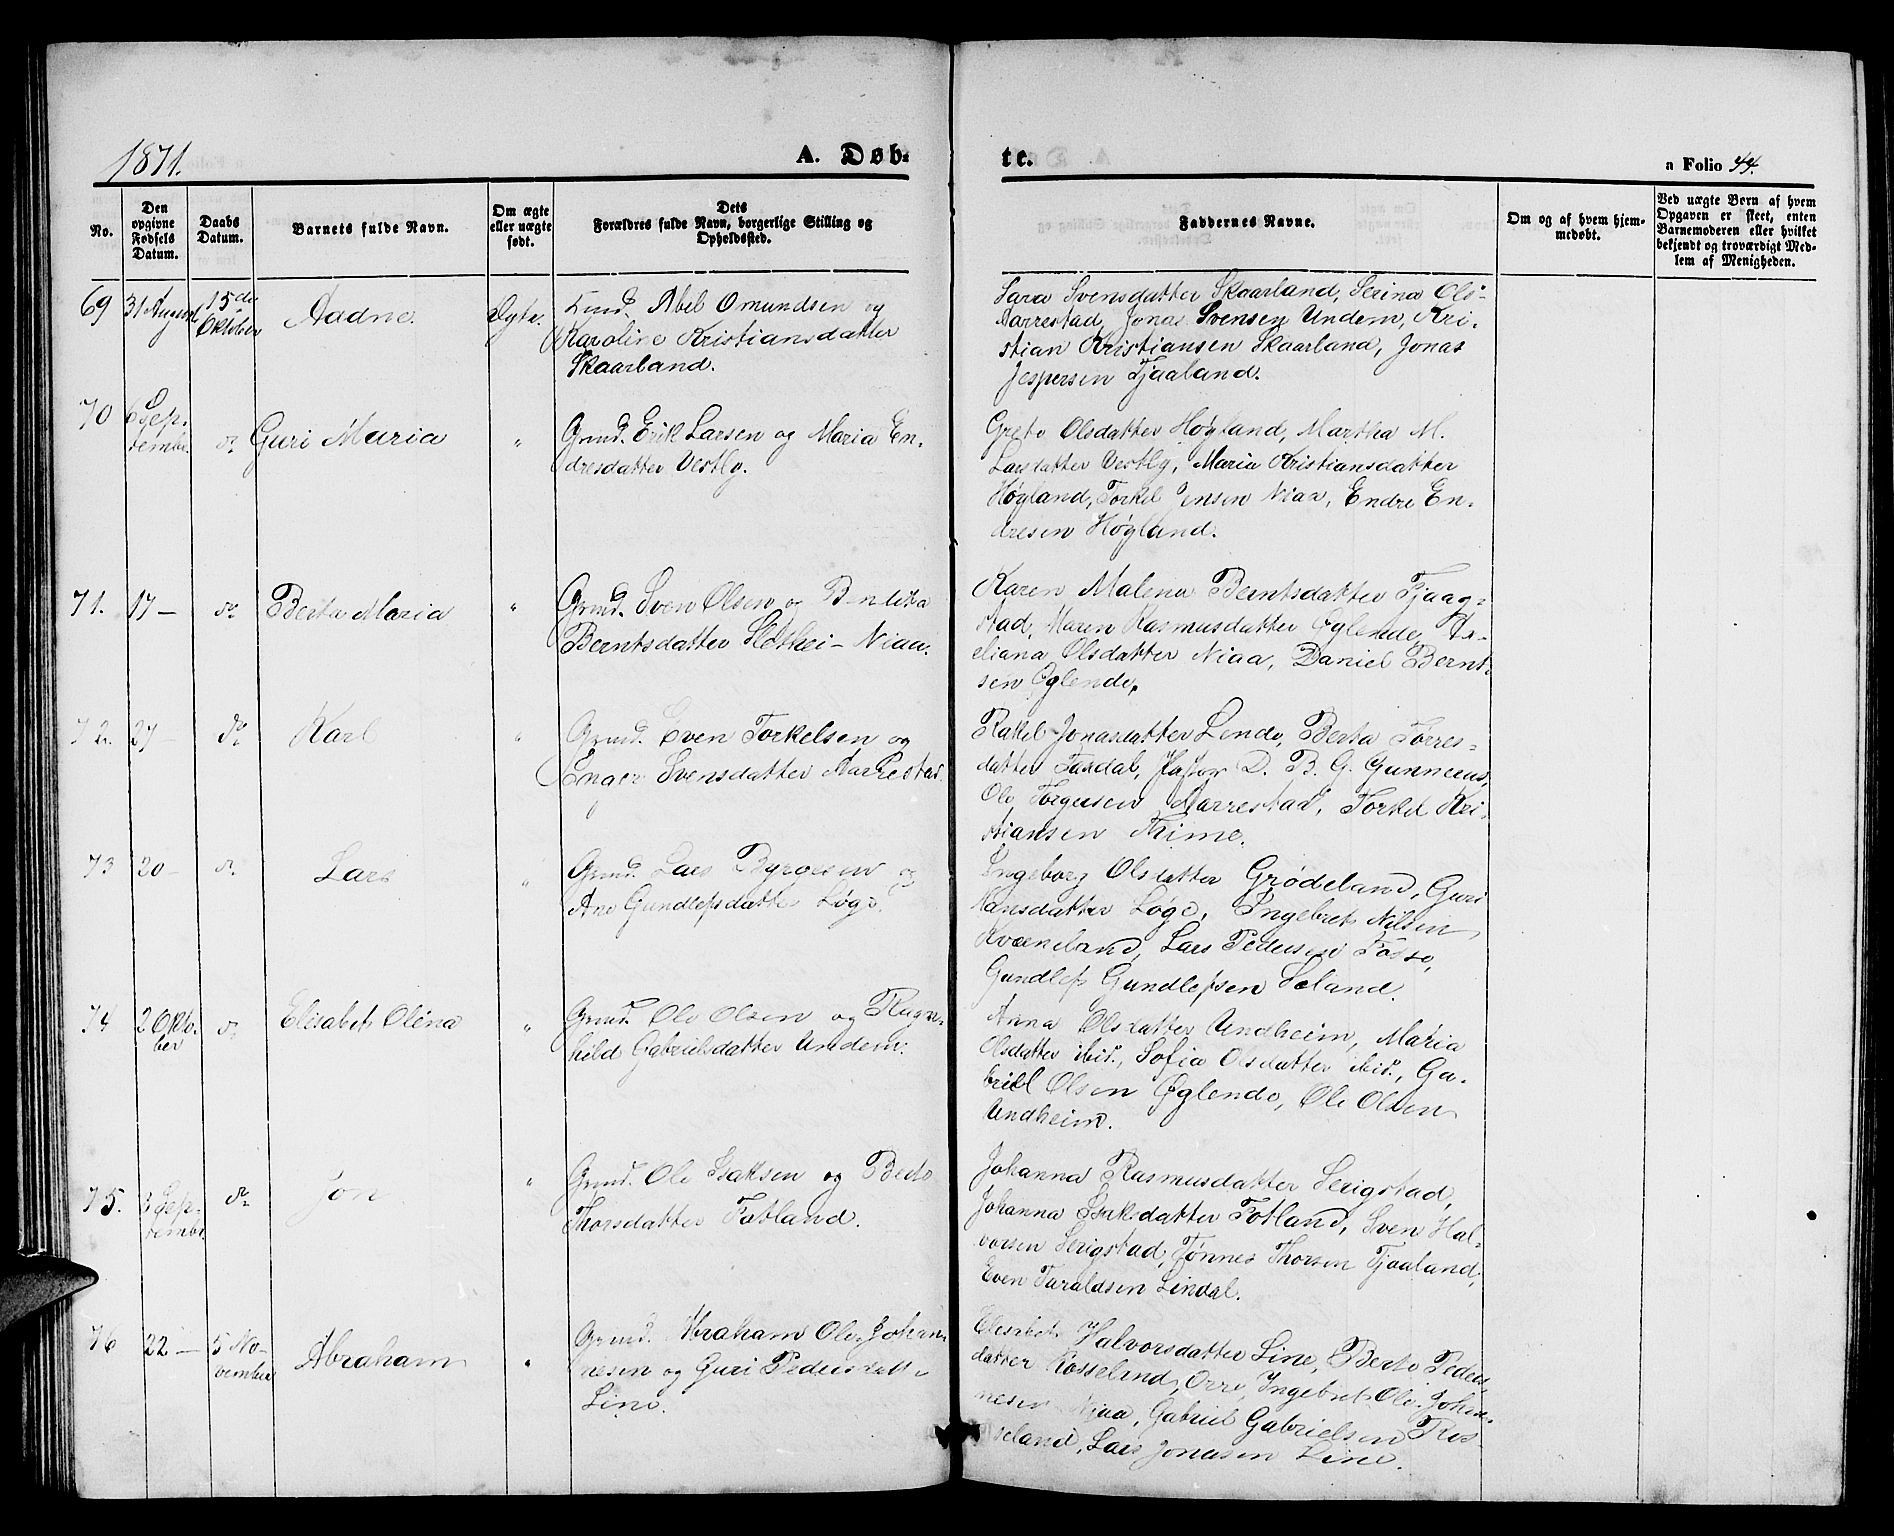 1871.
A. Døb-
te.
a Folio 44.
No.
Den opgivne Fødsels Datum.
Daabs Datum.
Barnets fulde Navn.
Om ægte eller uægte født.
Dets
Forældres fulde Navn, borgerlige Stilling og Opholdssted.
Faddernes Navne.
Om og af hvem hjemmedøbt.
Ved uægte Børn af hvem Opgaven er skeet, enten Barnemoderen eller hvilket bekjendt og troværdigt Medlem af Menigheden.
69 31 August 15de Oktober Aadne. Ægte. Abel Omundsen og
Karoline Kristiansdatter
Skaarland.
Sara Svensdatter Skaarland, Serina Ols-
Aarrestad, Jonas Svensen Undem, Kri-
stian Kristiansen Skaarland, Jonas
Jespersen Tjaaland.
70 6 Sep-
tembr. do Guri Maria " Grmd. Erik Larsen og Maria En-
dresdatter Vestly.
Grete Olsdatter Høgland, Martha M.
Larsdatter Vestly, Maria Kristiansdatter
Høgland, Torkel Jensen Niaa, Endre En-
dresen Høgland.
71. 17 – do Berta Maria " Grmd. Sven Olsen og
Berntsdatter Slethei – Niaa.
Karen Malena Berntsdatter Tjaag-
stad, Maren Rasmusdatter Øglende,
eliana Olsdatter Niaa, Daniel Bernt-
sen Øglende.
72. 27 – do Karl " Grmd. Even Torkelsen og
Svensdatter Aarrestad.
Rakel Jonasdatter Lende, Berta Torres-
datter Taxdal, Pastor D. B. G. Gunnerus,
Ole Torgersen Aarrestad, Torkel Kri-
stiansen Thime.
73 20 – do Lars " Grmd. Lars Byrgesen og
Ane Gundlefsdatter Løge.
Ingeborg Olsdatter Grødeland, Guri
Hansdatter Løge, Ingebret Nilsen
Kvæneland, Lars Pedersen Fosse,
Gundlef Gundlefsen Søland.
74 2 Okto-
ber do Elisabet Olena " Grmd. Ole Olsen og Ragn-
hild Gabrielsdatter Undem.
Anna Olsdatter Undheim, Maria
Olsdatter ibid., Sofia Olsdatter ibid., Ga-
briel Olsen Øglende, Ole Olsen
Undheim.
75. 3 Sep-
tembr do Jon " Grmd. Ole Isaksen og Berte
Thorsdatter Fotland.
Johanna Rasmusdatter Serigstad,
Johanna Isaksdatter Fotland, Sven Hal-
vorsen Serigstad, Tønnes Thorsen Tjaaland,
Even Taraldsen Lindal.
76 22 – 5 No-
vember Abraham " Grmd. Abraham Ole Johan-
nesen og Guri Pedersdatter
Line.
Elisabet Halvorsdatter Line, Berte Peders-
datter Rosseland, Orre, Ingebret Ole Johan-
nesen Njaa, Gabriel Gabrielsen Ros-
seland, Lars Jonasen Line.